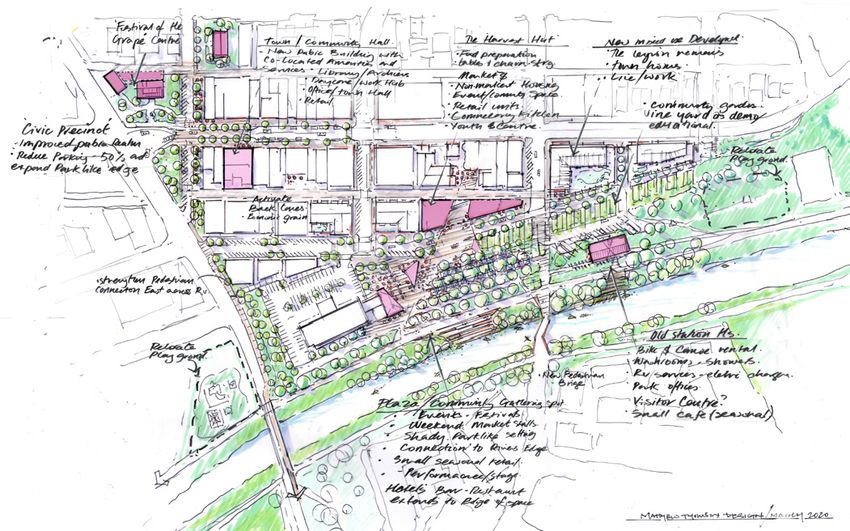 Festival of the
Grape Centre
Town / Community Hall
New Public Building with
Co-Located Amenities and
services · Library/Archives
· Daycare/Work Hub
· Office/Town Hall
· Retail
The Harvest Hut
· Food preparation
· tables & chairs strg.
Market &
· Nonmarket Housing
· Event/Commty Space
· Retail units
· Commissary Kitchen
· Youth & Centre.
New mixed use Developmt.
· town homes
· Live/work
· Community garden
vine yard as demo
educational.
Relocate
Play ground.
Civic Precinct
· Improved public realm
· Reduce Parking 50% and
expand Park like edge
Activate
Back Lanes
· Economic grain
· strengthen Pedestrian
Connection East across Rv.
Relocate
Play ground.
· New Pedestrian
Bridge
Old Station Hs.
· Bike & Canoe rental.
· Washrooms - showers
· RV services - electric charger.
· Park offices
· Visitor Centre?
· Small cafe (seasonal)
Plaza / Community Gathering spot
· Events - Festivals
· Weekend Market stalls
· Shady Parklike setting
· Connection to Rivers Edge
· Small seasonal retail.
- Performance/stage
Hotels Bar - Restaurant
extends to Edge of space
DESIGN / MARCH 2020